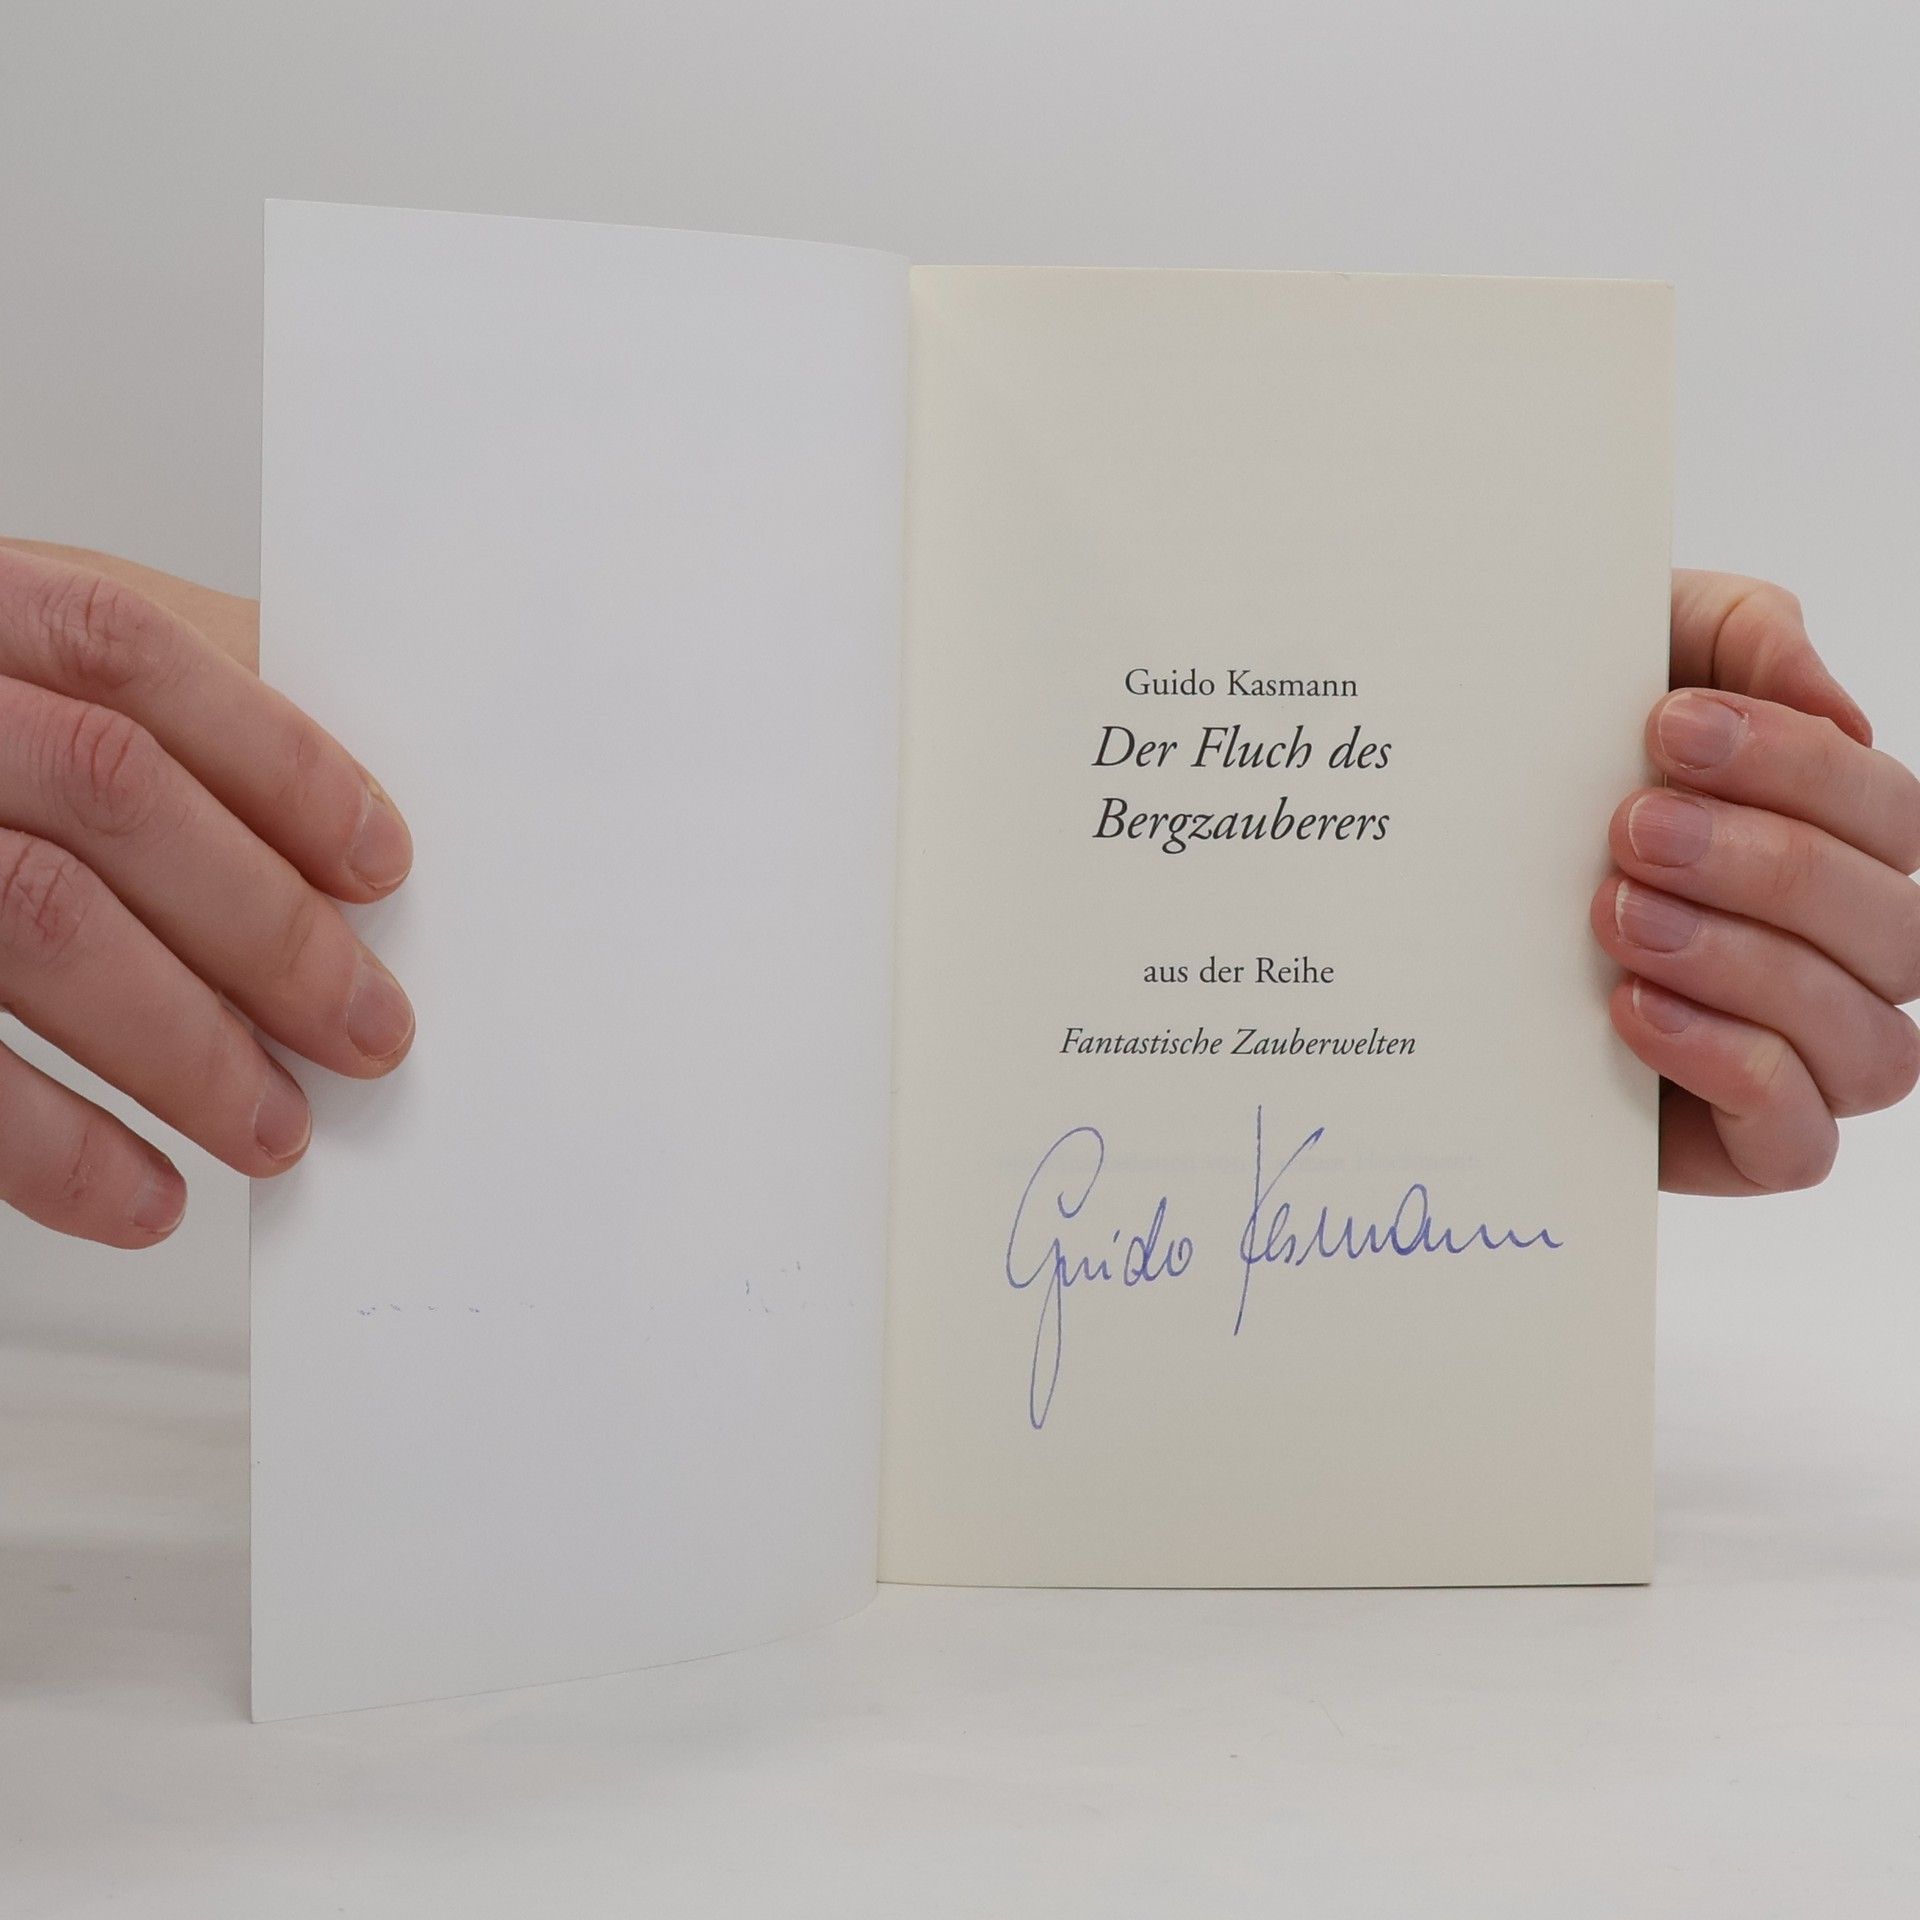 Guido Kasmann
Der Fluch des
Bergzauberers
aus der Reihe
Fantastische Zauberwelten
Guido Kasmann